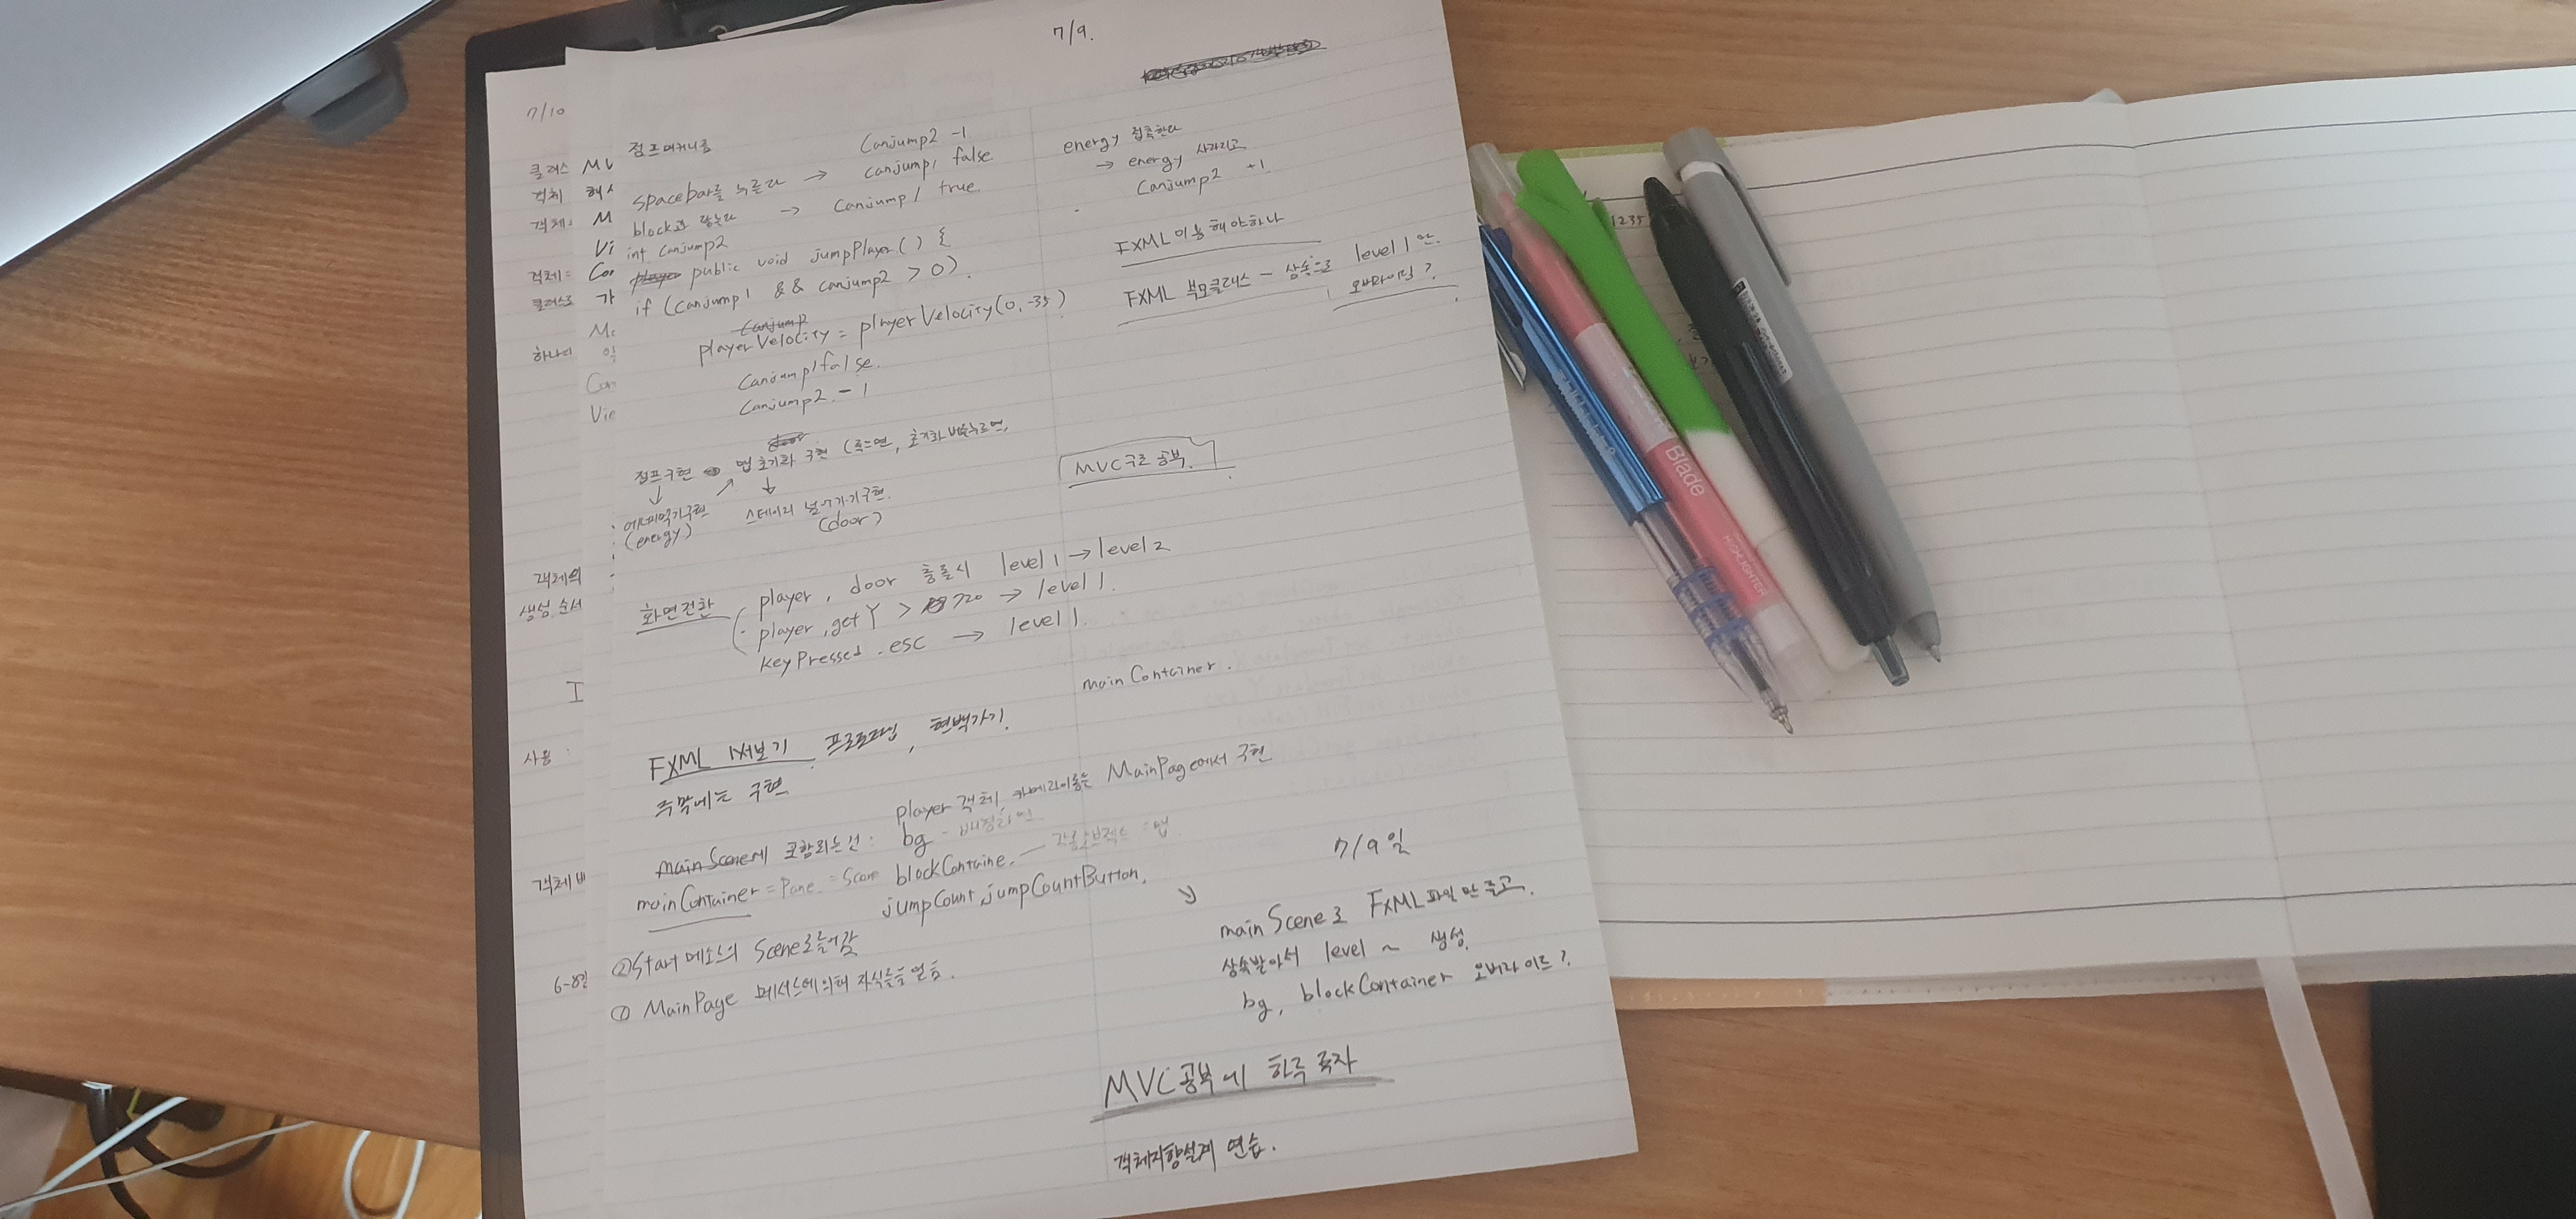 7/9.
7/10
클래스 MV
객체
객체: M
Vi
객체= Con
클래스로 가
Mo
하나의
Con
Vie
객체의
생성 순서
I
사용:
객체 비
6-8장
점프 메커니즘
Canjump2 -1
spacebar를 누른다 → canjump1 false
block과 닿는다 → canjump1 true.
int canjump2
public void jumpPlayer() {
if (canjump1 && canjump2 > 0).
playerVelocity = playerVelocity(0,-35)
canjump1 false.
canjump2 - 1
energy 접촉한다
→ energy 사라지고
canjump2 +1.
FXML 이용해야하나
FXML 부모클래스 - 상속으로 level 1 은
오버라이딩?
점프구현 맵 초기화 구현 (죽으면, 초기화버튼누르면,
↓ ↗ ↓
에너지먹기구현 스테이지 넘어가기구현.
(energy) (door)
MVC구조 공부.
화면전환 player, door 충돌시 level 1 → level 2
player.getY > 720 → level 1.
keyPressed.esc → level 1.
mainContainer.
FXML 써보기
주말에는 구현
mainScene에 포함되는건: player 객체, 카메라이동은 MainPage에서 구현
bg - 배경화면
mainContainer = Pane = Scene blockContaine. - 각종오브젝트 = 맵
jumpCount, jumpCountButton.
② Start 메소드의 Scene로들어감
① MainPage 메서드에의해 자식들을 얻음.
7/9일
mainScene로 FXML파일만들고.
상속받아서 level ~ 생성.
bg, blockContainer 오버라이드?
MVC공부에 하루 쓰자
객체지향설계 연습.
1235
Blade
HIGHLIGHTER